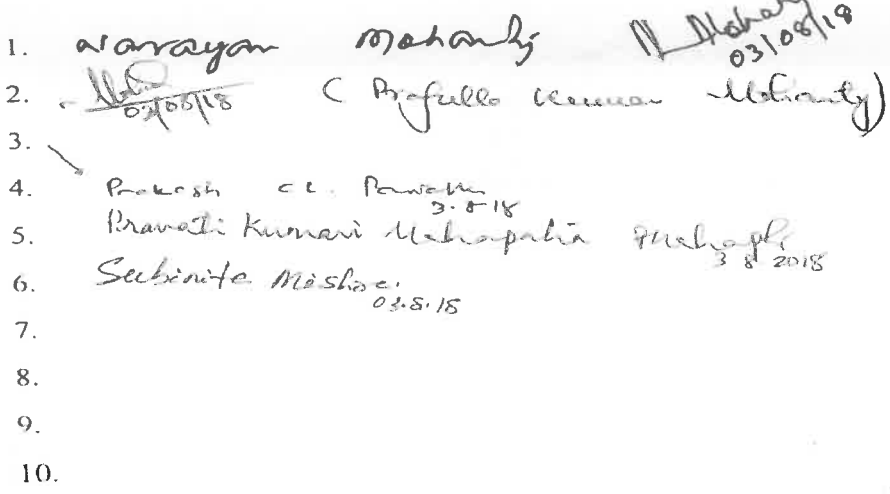 1. Narayan Mohanty N Mohanty 03/08/18
2. 03/08/18 ( Prafulla Kumar Mohanty)
3.
4. Prakash ch. 3.8.18
5. Pravati Kumari Mahapatra 3 8 2018
6. Subinita Mishra 03.8.18
7.
8.
9.
10.